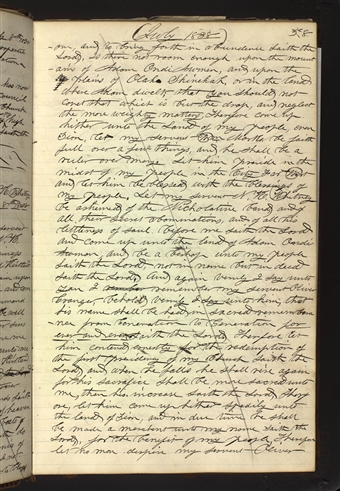 (July 1838) 58
-ous, and to bring forth in abundance Saith the
Lord, is there not room enough upon the mount
-ains of Adam Ondi Awmen, and upon the
plains of Olaha Shinehah, or in the land
where Adam dwelt that you should not
covet that which is but the drop, and neglect
the more weighty matters Therefore come up
hither unto the Land of my People, even
Zion, let my servant be faith
-full over a few things, and he shall be a
ruler over many. Let him preside in the
midst of my people in the City Far West
and let him be blessed with the blessings of
my people. Let my servant N. K. Whitney
be ashamed of the Nicholatine band, and of
all their secret abominations, and of all his
littleness of soul before me saith the Lord
and come up unto the land of Adam Ondi
Awman, and be a bishop unto my people
Saith the Lord, not in name but in deed
Saith the Lord, And again verily I say unto
you I remember my servant Oliver
Granger, Behold verily I say unto him, that
his name shall be had in sacred remembran
-nce from Generation to Generation, for
ever and ever, saith the Lord. Therefore let
him contend earnestly for the redemption of
the first presidency of my Church Saith the
Lord, and when he falls he shall rise again
for his sacrafice shall be more sacred unto
me, than his increase Saith the Lord, There
-ore, let him come up hither speedily unto
the land of Zion, and in due time he shall
be made a merchant unto my name Saith the
Lord, for the benefit of my people, Therefore
let no man despise my servant Oliver